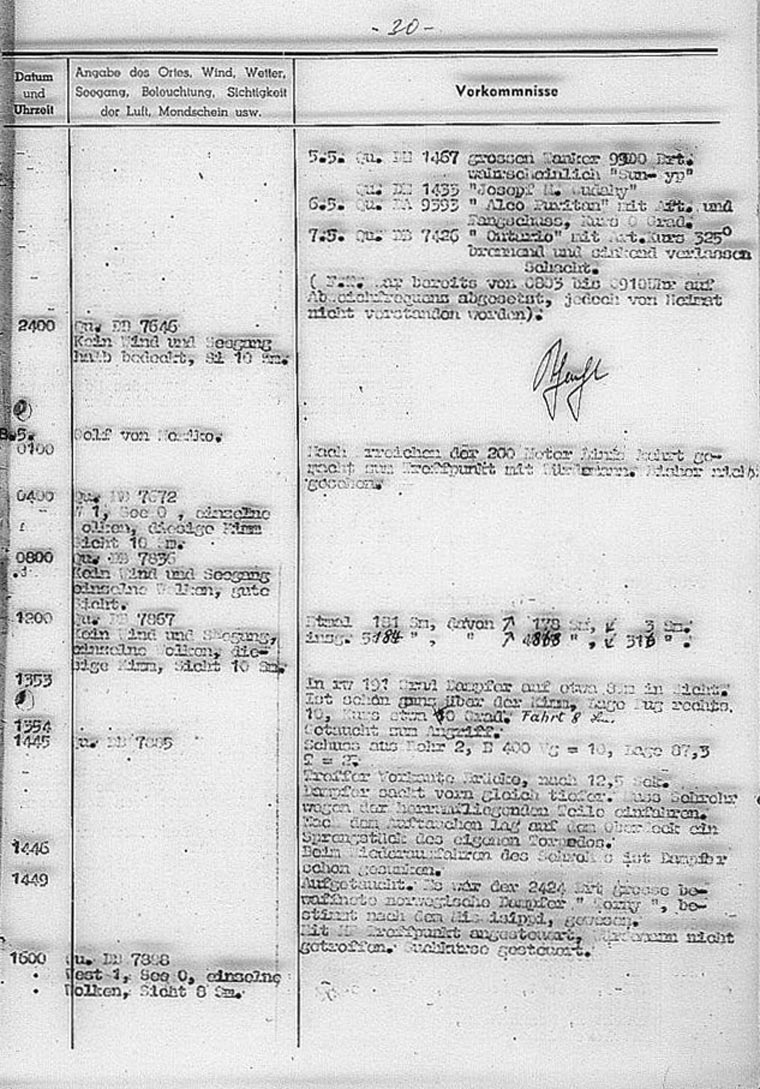 - 30 -
Datum und Uhrzeit
Angabe des Ortes, Wind, Wetter,
Seegang, Beleuchtung, Sichtigkeit
der Luft, Mondschein usw.
Vorkommnisse
5.5. Qu. 1467 grossen Tanker Brt.
wahrscheinlich "Sun-
Qu. 1435 "Josepf M. Cudahy"
6.5. Qu. DA 9593 " Alco Puritan" mit Art. und
Fangschuss, Kurs 0 Grad.
7.5. Qu. DB 7426 " Ontario" mit Art.Kurs 325°
brennend und sinkend verlassen
( war bereits von bis auf
abgesetzt, jedoch von Heimat
nicht verstanden worden).
2400 Qu. DB 7646
Kein Wind und Seegang
halb bedeckt, Si 10 Sm.
8.5.
0100
Golf von
Nach Erreichen der 200 Meter Linie Fahrt ge-
macht zum Treffpunkt mit Bisher nicht
gesehen.
0400 Qu. DB 7672
1, See 0 , einzelne
Wolken, diesige Kimm
Sicht 10 Sm.
0800 Qu. DB 7836
Kein Wind und Seegang
einzelne Wolken, gute
Sicht.
1200 Qu. DB 7867
Kein Wind und Seegang,
einzelne Wolken, die-
sige Kimm, Sicht 10 Sm.
Etmal 181 Sm, davon ↗ 178 Sm, ↙ 3 Sm.
insg. 5184 " , " ↗ 4868 " , ↙ 316 " .
1353
In rw Grad Dampfer auf etwa Sm in Sicht.
Ist schön ganz über der Kimm, Lage Bug rechts
10, Kurs etwa Grad. Fahrt 8
1354
Getaucht zum Angriff.
1445 Qu. DB 7885
Schuss aus Rohr 2, E 400 Vg = 10, Lage 87,3
T =
Treffer Vorkante Brücke, nach 12,5 Sek.
Dampfer sackt vorn gleich tiefer. Muss Sehrohr
wegen der herumfliegenden Teile einfahren.
Nach dem Auftauchen lag auf dem Oberdeck ein
Sprengstück des eigenen Torpedos.
1446
Beim Wiederausfahren des Sehrohrs ist Dampfer
schon gesunken.
1449
Aufgetaucht. Es war der 2424 Brt grosse be-
waffnete norwegische Dampfer " Torny ", be-
stimmt nach dem gewesen.
Mit Treffpunkt angesteuert, nicht
getroffen. Suchkurse gesteuert.
1600 Qu. DB 7888
West 1, See 0, einzelne
Wolken, Sicht 8 Sm.